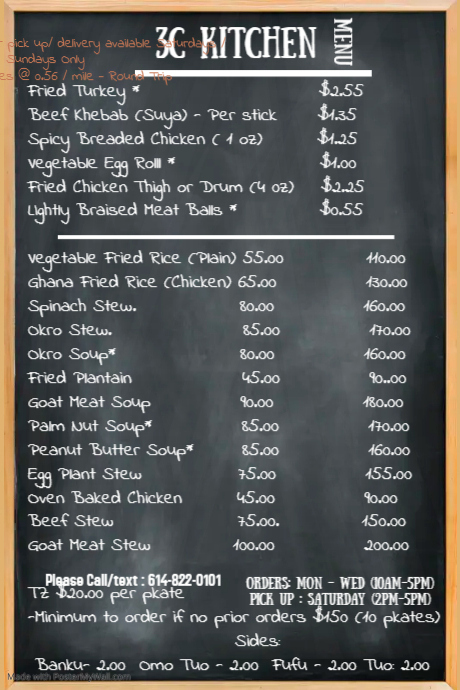 3C KITCHEN MENU
pick up/ delivery available Saturdays /
Sundays Only
es @ 0.56 / mile - Round Trip
Fried Turkey * $2.55
Beef Khebab (Suya) - Per stick $1.35
Spicy Breaded Chicken ( 1 oz) $1.25
Vegetable Egg Roll * $1.00
Fried Chicken Thigh or Drum (4 oz) $2.25
Lightly Braised Meat Balls * $0.55
Vegetable Fried Rice (Plain) 55.00 110.00
Ghana Fried Rice (Chicken) 65.00 130.00
Spinach Stew. 80.00 160.00
Okro Stew. 85.00 170.00
Okro Soup* 80.00 160.00
Fried Plantain 45.00 90..00
Goat Meat Soup 90.00 180.00
Palm Nut Soup* 85.00 170.00
Peanut Butter Soup* 85.00 160.00
Egg Plant Stew 75.00 155.00
Oven Baked Chicken 45.00 90.00
Beef Stew 75.00. 150.00
Goat Meat Stew 100.00 200.00
Please Call/text : 614-822-0101
TZ $20.00 per pkate
ORDERS: MON - WED (10AM-5PM)
PICK UP : SATURDAY (2PM-5PM)
-Minimum to order if no prior orders $150 (10 pkates)
Sides:
Banku- 2.00 Omo Tuo - 2.00 Fufu - 2.00 Tuo: 2.00
Made with PosterMyWall.com